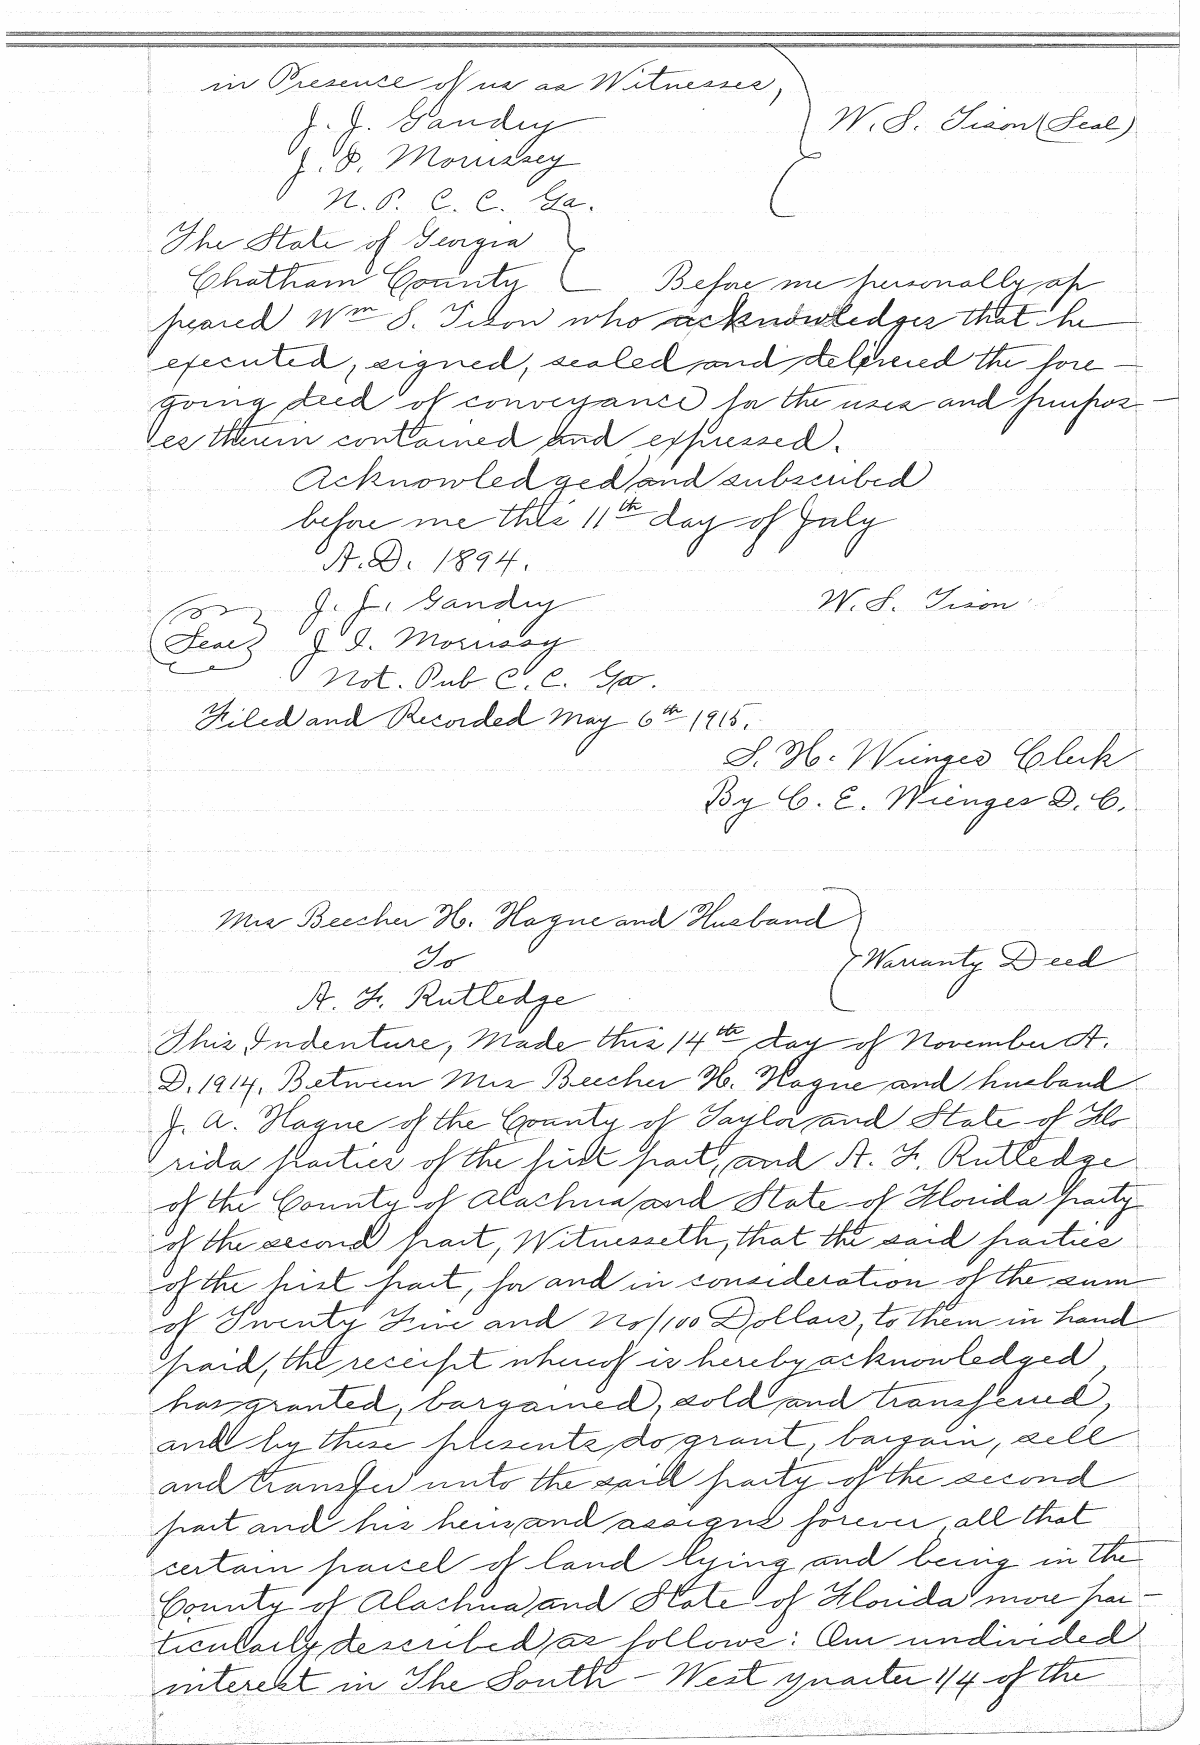 in Presence of us as Witnesses,
J. J. Gandry
W. S. Tison (Seal)
J. S. Morrissey
N. P. C. C. Ga.
The State of Georgia
Chatham County Before me personally ap
peared Wm S. Tison who acknowledges that he
executed, signed, sealed and delivered the fore-
going deed of conveyance for the uses and purpos-
es therein contained and expressed.
Acknowledged and subscribed
before me this 11th day of July
A. D. 1894.
J. J. Gandry W. S. Tison
Seal J. S. Morrissy
Not. Pub C. C. Ga.
Filed and Recorded May 6th 1915.
S. H. Wienges Clerk
By C. E. Wienges D. C.
Mrs Beecher H. Hague and Husband
To Warranty Deed
A. F. Rutledge
This Indenture, Made this 14th day of November A.
D. 1914, Between Mrs Beecher H. Hague and husband
J. A. Hague of the County of Taylor and State of Flo
rida parties of the first part, and A. F. Rutledge
of the County of Alachua and State of Florida party
of the second part, Witnesseth, that the said parties
of the first part, for and in consideration of the sum
of Twenty Five and No/100 Dollars, to them in hand
paid, the receipt whereof is hereby acknowledged,
has granted, bargained, sold and transferred,
and by these presents do grant, bargain, sell
and transfer unto the said party of the second
part and his heirs and assigns forever, all that
certain parcel of land lying and being in the
County of Alachua and State of Florida more par-
ticularily described as follows: Our undivided
interest in The South-West quarter 1/4 of the